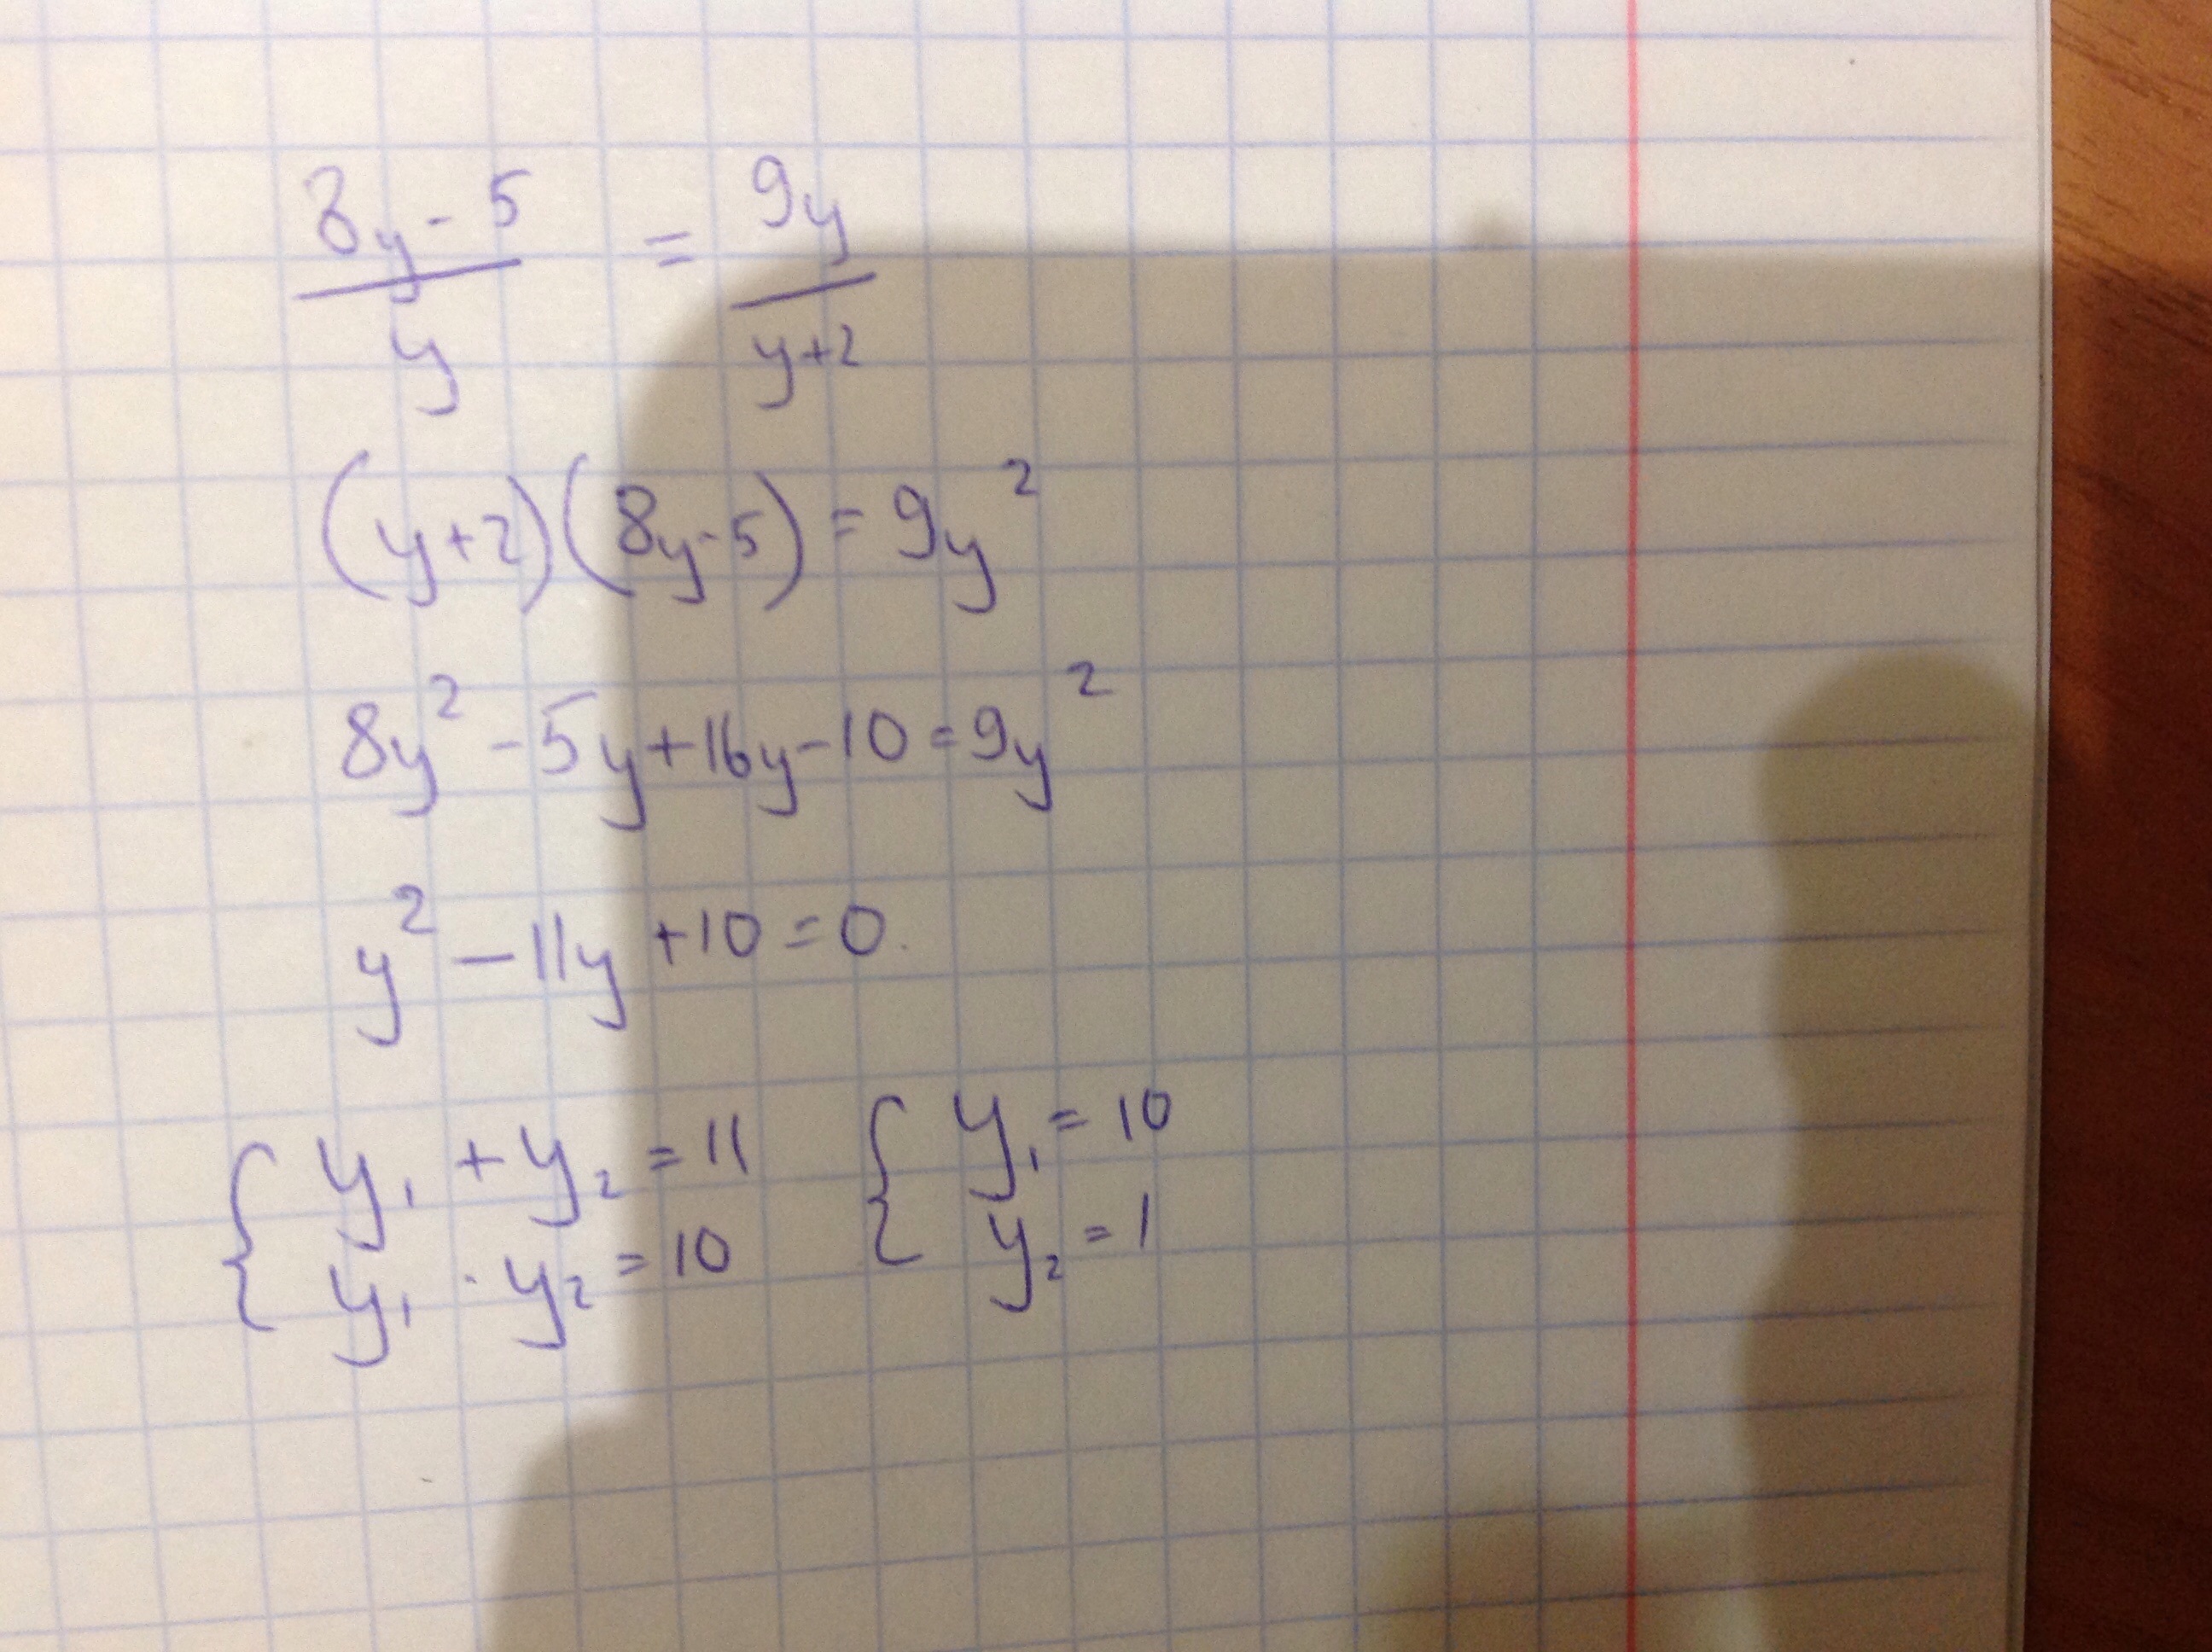 (8y - 5)/y = 9y/(y+2)
(y+2)(8y-5) = 9y²
8y² - 5y + 16y - 10 = 9y²
y² - 11y + 10 = 0.
{ y₁ + y₂ = 11 { y₁ = 10
y₁ · y₂ = 10 y₂ = 1